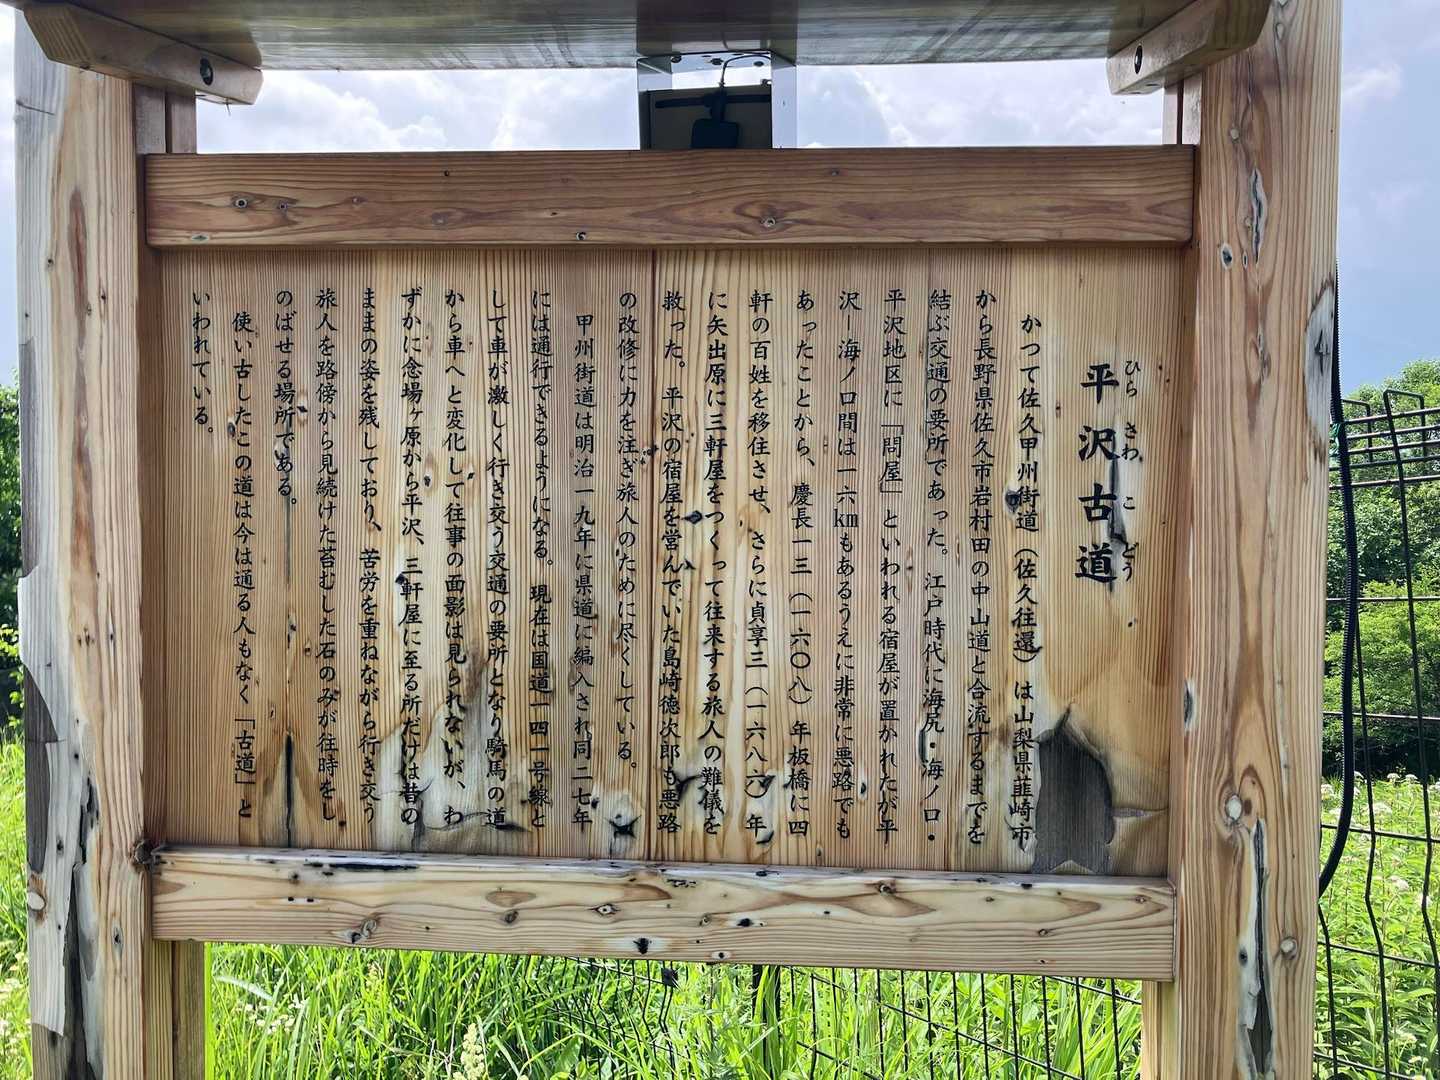 平沢古道
ひらさわこどう
かつて佐久甲州街道（佐久往還）は山梨県韮崎市
から長野県佐久市岩村田の中山道と合流するまでを
結ぶ交通の要所であった。江戸時代に海尻・海ノ口・
平沢地区に「問屋」といわれる宿屋が置かれたが平
沢－海ノ口間は一六kmもあるうえに非常に悪路でも
あったことから、慶長一三（一六〇八）年板橋に四
軒の百姓を移住させ、さらに貞享三（一六八六）年
に矢出原に三軒屋をつくって往来する旅人の難儀を
救った。平沢の宿屋を営んでいた島崎徳次郎も悪路
の改修に力を注ぎ旅人のために尽くしている。
甲州街道は明治一九年に県道に編入され同二七年
には通行できるようになる。現在は国道一四一号線と
して車が激しく行き交う交通の要所となり騎馬の道
から車へと変化して往事の面影は見られないが、わ
ずかに念場ヶ原から平沢、三軒屋に至る所だけは昔の
ままの姿を残しており、苦労を重ねながら行き交う
旅人を路傍から見続けた苔むした石のみが往時をし
のばせる場所である。
使い古したこの道は今は通る人もなく「古道」と
いわれている。
4